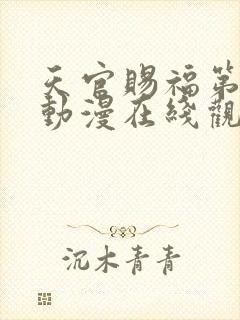 天官賜福第
動漫在綫觀
沉木青青